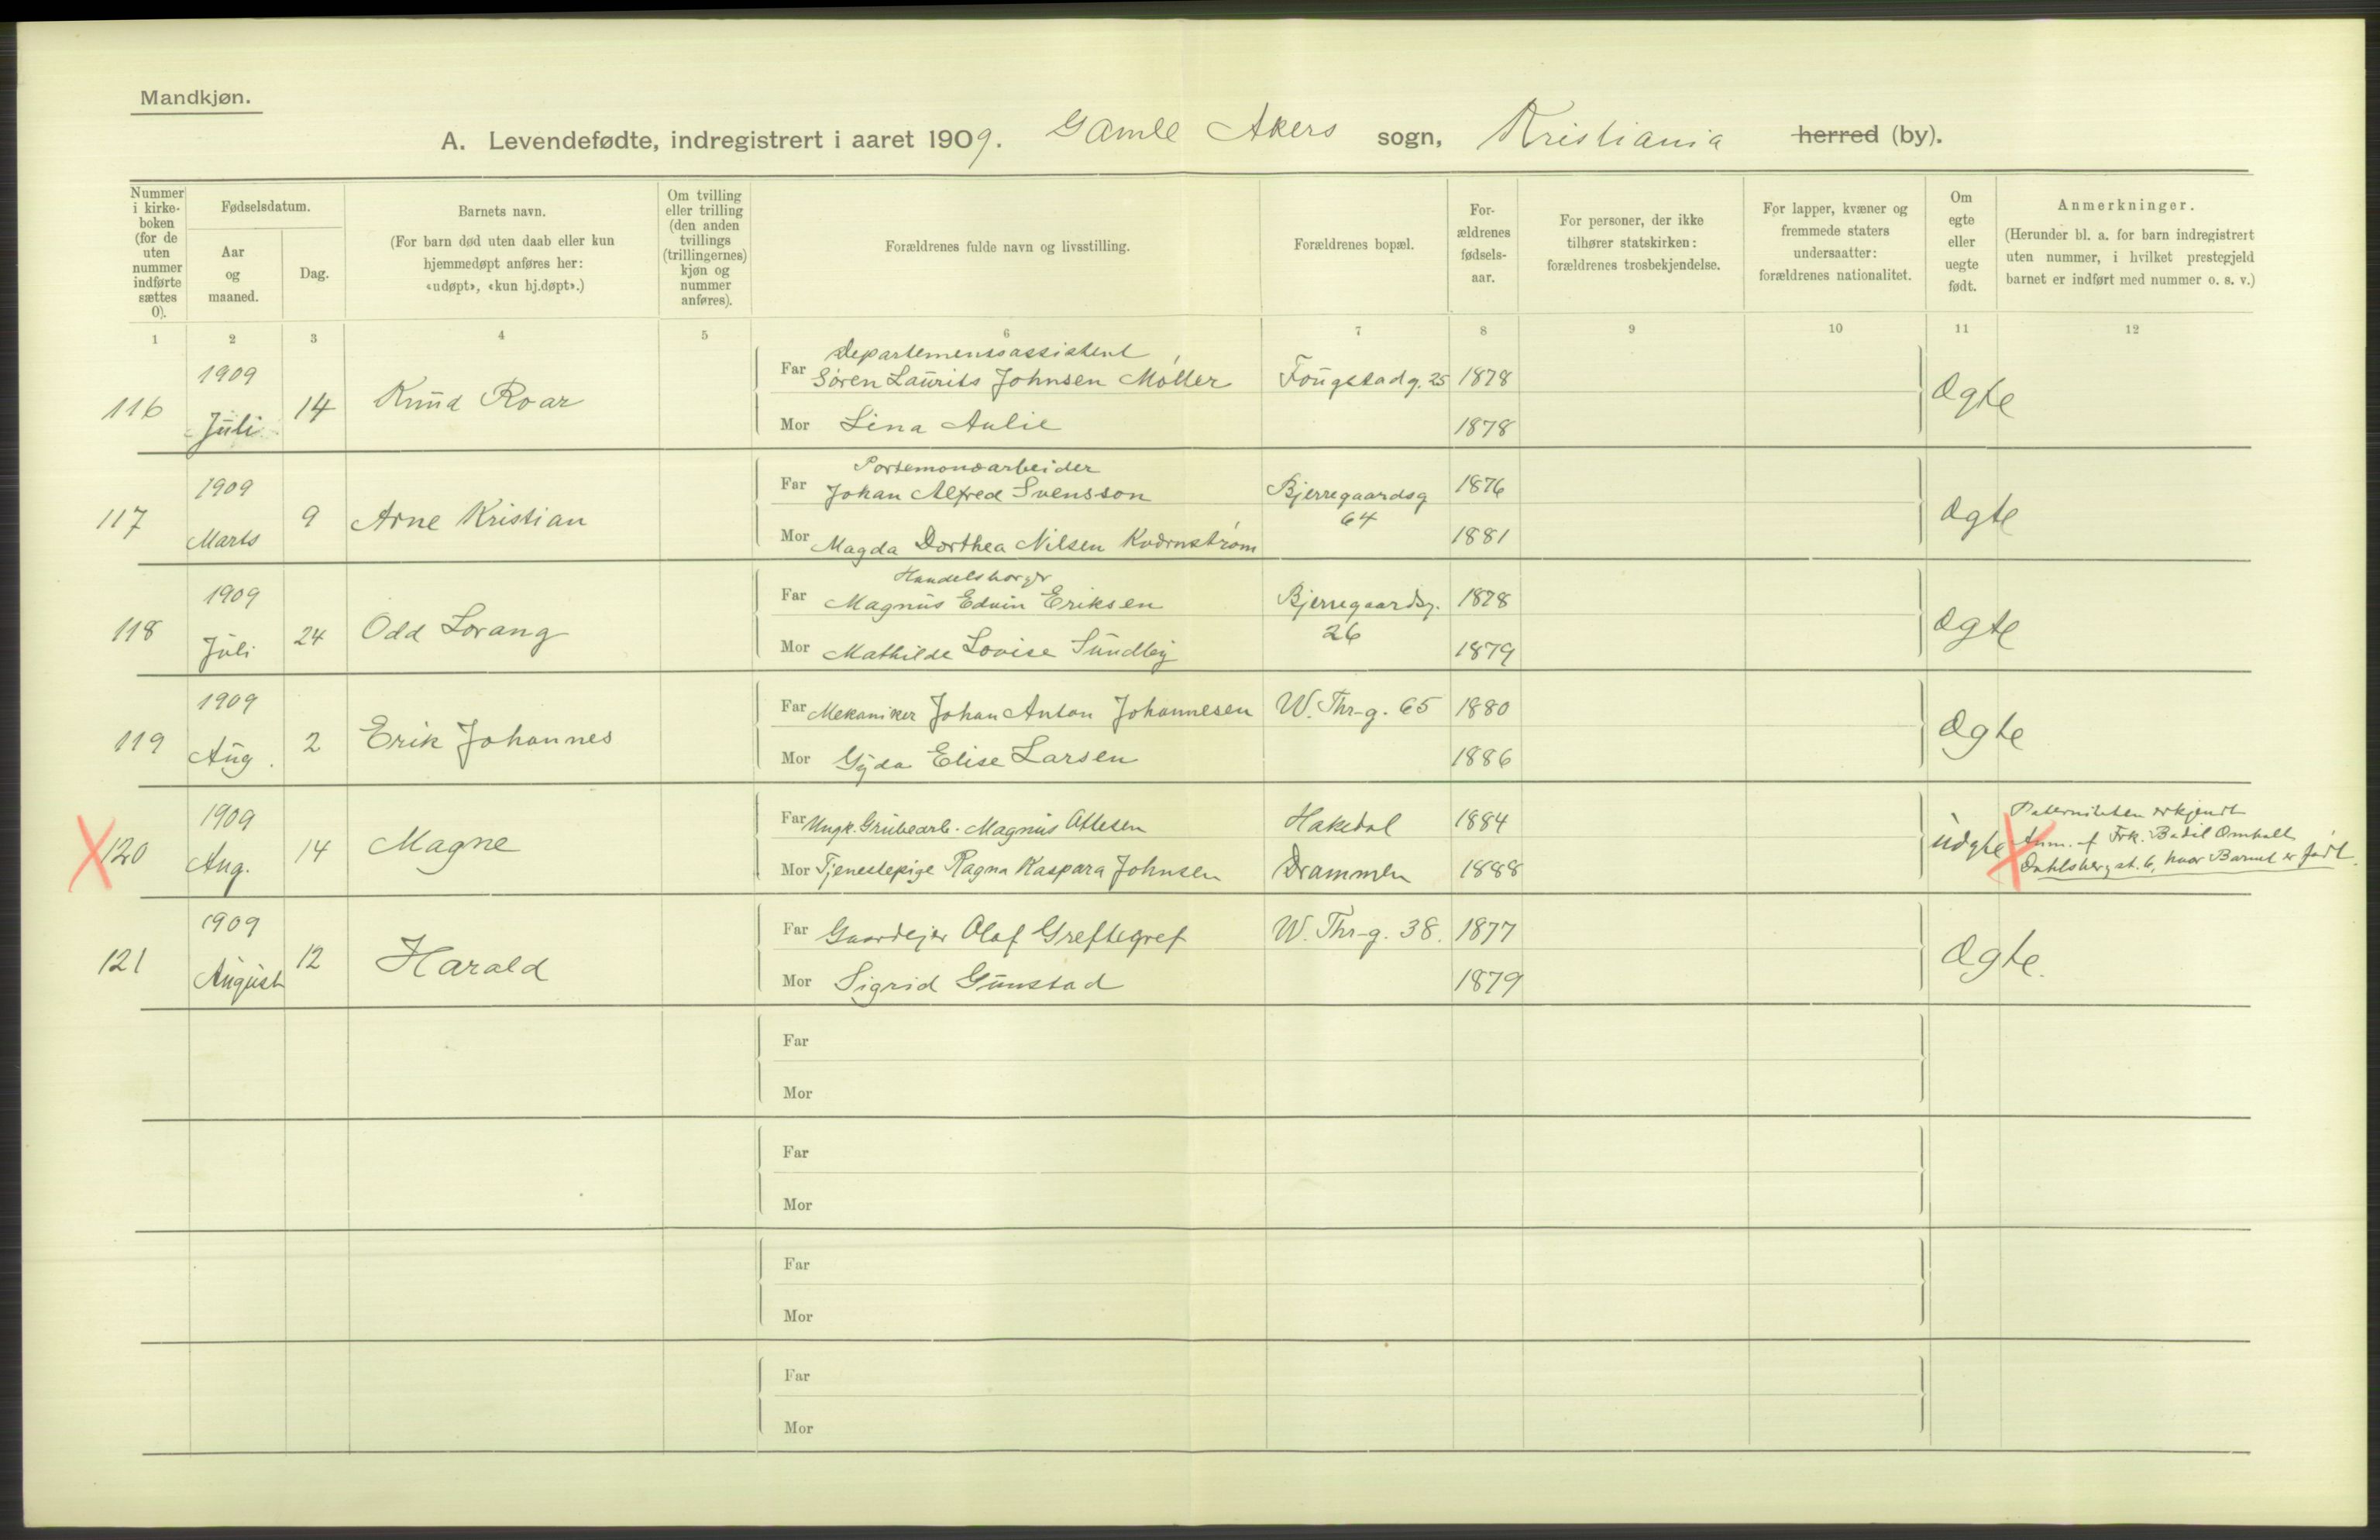 Mandkjøn.
A. Levendefødte, indregistrert i aaret 1909. Gamle Akers sogn, Kristiania herred (by).
Nummer i kirke-boken (for de uten nummer indførte sættes 0).
Fødselsdatum.
Aar og maaned.
Dag.
Barnets navn.
(For barn død uten daab eller kun hjemmedøpt anføres her: «udøpt», «kun hj.døpt».)
Om tvilling eller trilling (den anden tvillings (trillingernes) kjøn og nummer anføres).
Forældrenes fulde navn og livsstilling.
Forældrenes bopæl.
For-ældrenes fødsels-aar.
For personer, der ikke tilhører statskirken: forældrenes trosbekjendelse.
For lapper, kvæner og fremmede staters undersaatter: forældrenes nationalitet.
Om egte eller uegte født.
Anmerkninger.
(Herunder bl. a. for barn indregistrert uten nummer, i hvilket prestegjeld barnet er indført med nummer o. s. v.)
1 2 3 4 5 6 7 8 9 10 11 12
Departementsassistent
116 1909 Juli 14 Knud Roar Far Søren Laurits Johnsen Møller Fougstadg. 25 1878 Ægte
Mor Lina Aulie 1878
Portemonæarbeider
117 1909 Marts 9 Arne Kristian Far Johan Alfred Svensson Bjerregaardsg 64 1876 Ægte
Mor Magda Dorthea Nilsen Kværnstrøm 1881
Handelsborger
118 1909 Juli 24 Odd Lorang Far Magnus Edvin Eriksen Bjerregaardsg. 26 1878 Ægte
Mor Mathilde Lovise Sundby 1879
119 1909 Aug. 2 Erik Johannes Far Mekaniker Johan Anton Johannesen W. Thr-g. 65 1880 Ægte
Mor Gyda Elise Larsen 1886
120 1909 Aug. 14 Magne Far Ungk. Grubearb. Magnus Ottesen Hakedal 1884 Uægte Paterniteten erkjendt
Mor Tjenestepige Ragna Kaspara Johnsen Drammen 1888 Anm. af Frk. Bodil Omholt
Dahlsbergst. 6, hvor Barnet er født.
121 1909 August 12 Harald Far Gaardejer Olaf Greftegref W. Thr-g. 38. 1877 Ægte.
Mor Sigrid Gunstad 1879
Far
Mor
Far
Mor
Far
Mor
Far
Mor